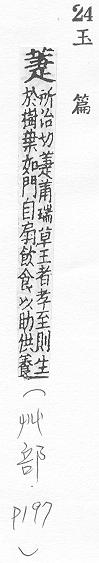 24
玉篇
萐
所洽切萐莆瑞草王者孝至則生
於樹葉如門自扇飲食以助供養
(艸部.
P197
)